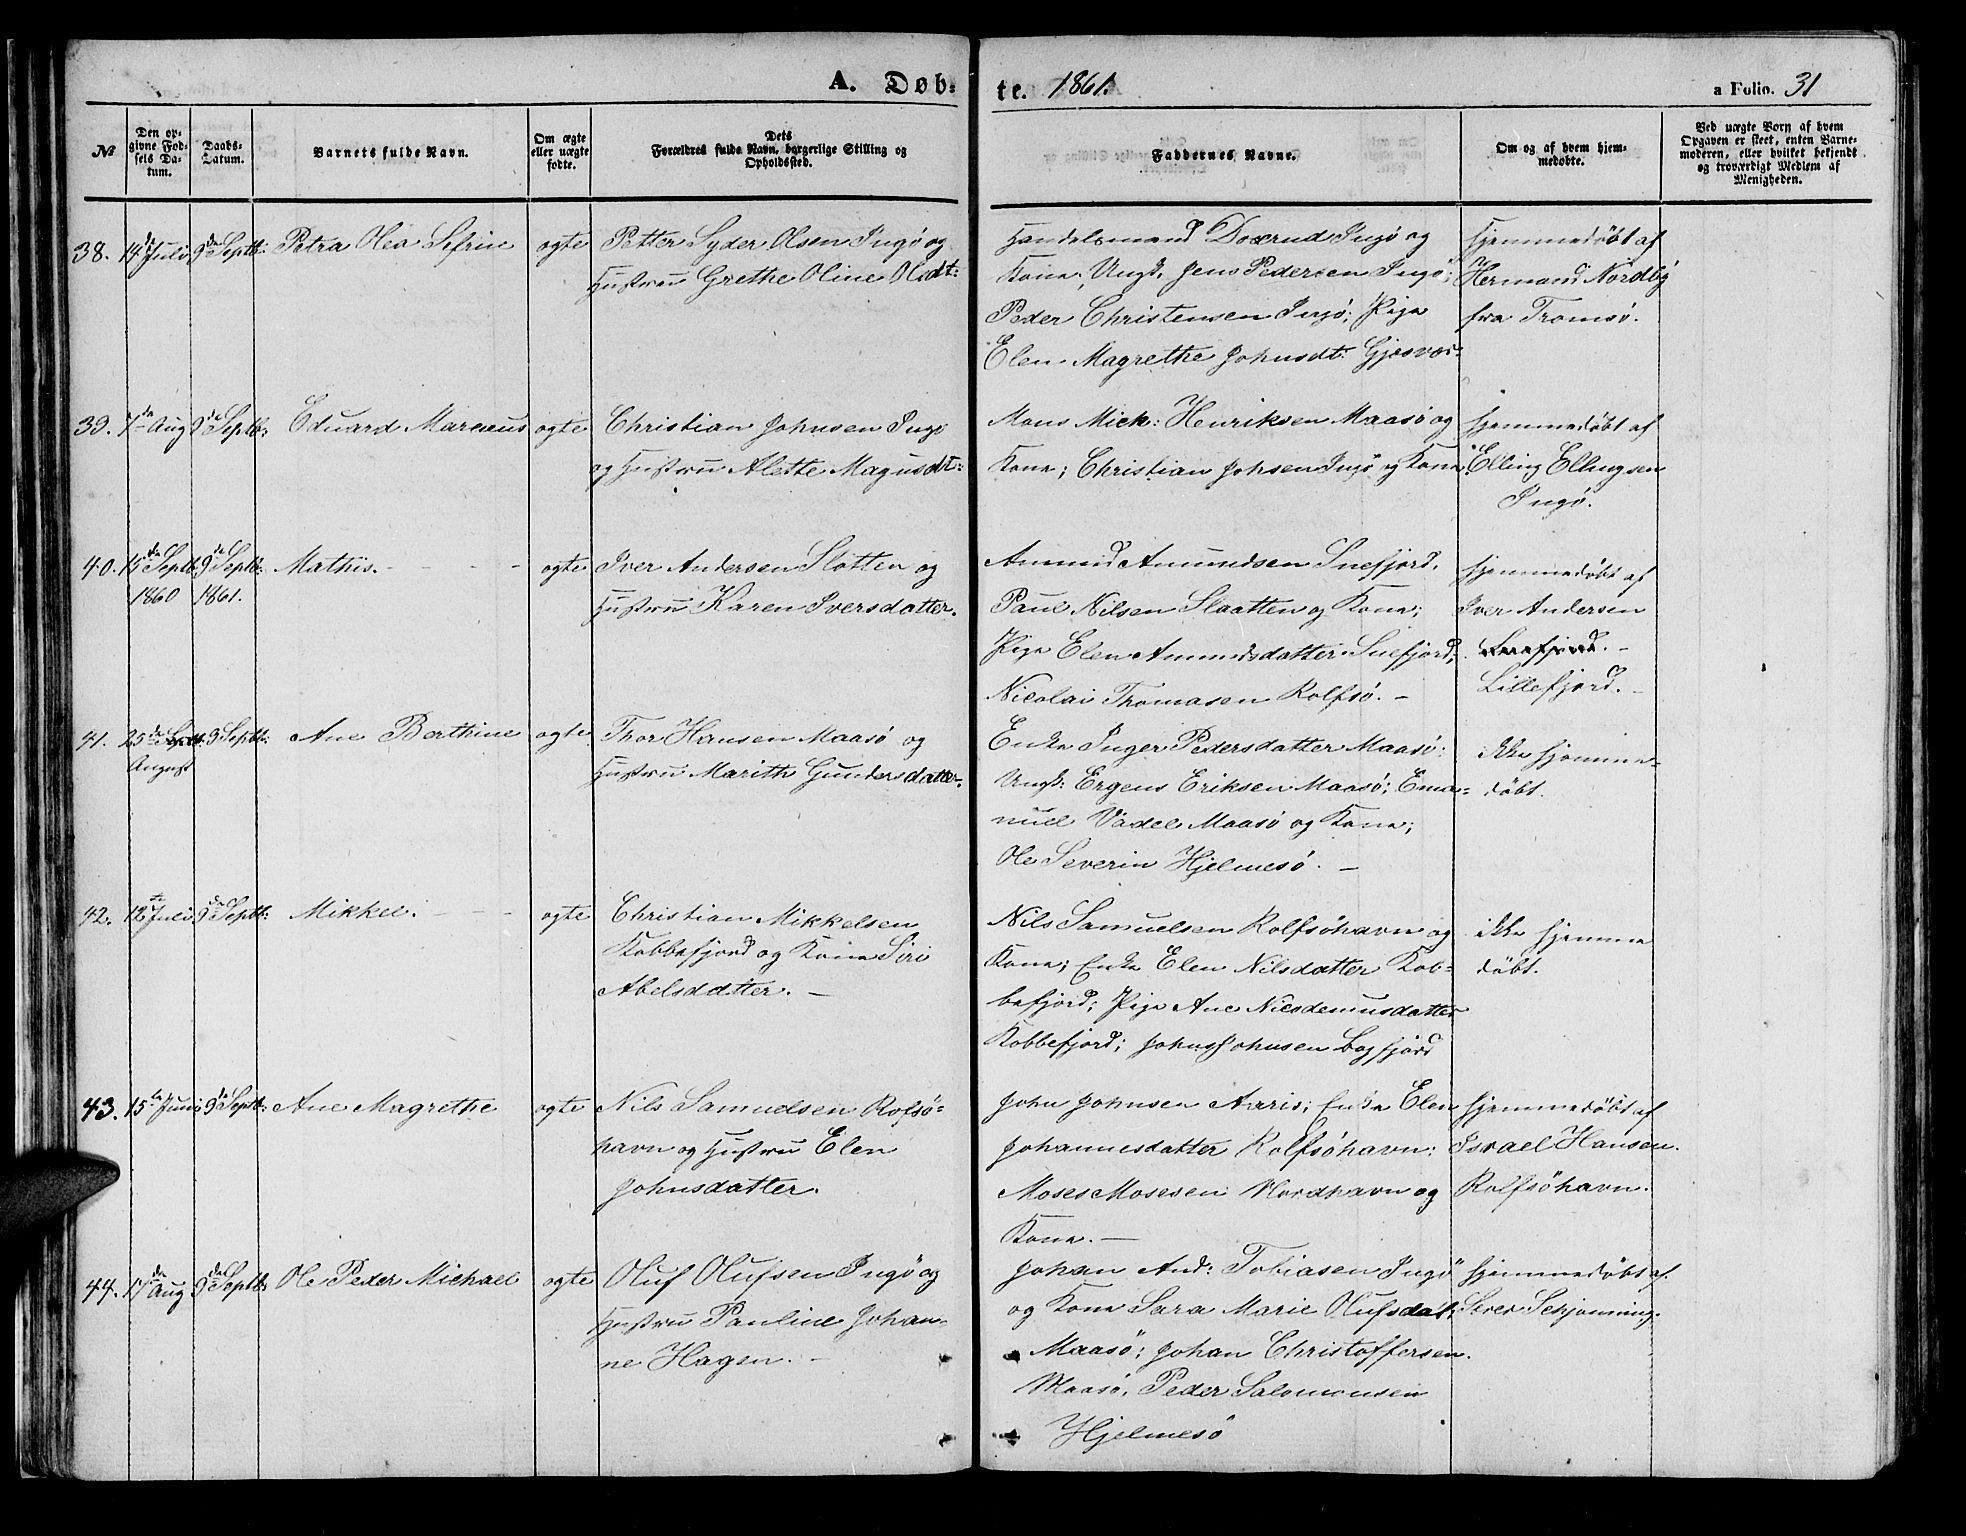 A. Døb-
te. 1861.
a Folio. 31
№
Den op-
givne Fød-
sels Da-
tum.
Daabs-
Datum.
Barnets fulde Navn.
Om ægte
eller uægte
fødte.
Dets
Forældres fulde Navn, borgerlige Stilling og
Opholdssted.
Faddernes Navne.
Om og af hvem hjem-
medøbte.
Ved uægte Born af hvem
Opgaven er skeet, enten Barne-
moderen, eller hvilket bekjendt
og troværdigt Medlem af
Menigheden.
38. 14 de Juli 9 de Septb: Petra Olea Sefrine ogte
Petter Syder Olsen Ingø og
Hustru Grethe Oline Olsdt:
Handelsmand Ingø og
Kone; Ungk. Jens Pedersen Ingø;
Peder Christensen Ingø; Pige
Elen Magrethe Johnsdt: Gjesvær-
Hjemmedöbt af
Hermand Nordby
fra Tromsö.
39. 7 de Aug 9 de Septb: Eduard Marcus ogte
Christian Johnsen Ingø
og Hustru Alette Magnsdt:
Mons Mick: Henriksen Maasö og
Kone; Christian Johsen Ingö og Kone
Hjemmedöbt af
Elling Ellingsen
Ingö.
40. 15 de Septb: 9 de Septb: Mathis. - - - ogte
1860 1861.
Iver Andersen Slotten og
Hustru Karen Iversdatter.
Ammund Amundsen Snefjord.
Paul Nilsen Slaatten og Kone;
Pige Elen Ammundsdatter Snefjord;
Nicolai Thomasen Rolfsö. -
Hjemmedöbt af
Iver Andersen
Snefjord. -
Lillefjord. -
41. 25 de Septb: 9 Septb: Ane Berthine ogte
August
Thor Hansen Maasö og
Hustru Marith Gundersdatter.
Enke Inger Pedersdatter Maasö:
Ungk: Ergens Eriksen Maasö; Ema-
nuel Vadel Maasö og Kone;
Ole Severin Hjelmesö. -
ikke hjemme-
döbt.
42. 12 te Juli 9 de Septb: Mikkel. - - - ogte
Christian Mikkelsen
Kobbefjord og Kone Siri
Abelsdatter. -
Nils Samuelsen Rolfsöhavn og
Kone; Enke Elen Nilsdatter Kob-
befjord; Pige Ane Nicodemusdatter
Kobbefjord; Johns Johnsen Bogfjord
ikke hjemme
döbt.
43. 15 de Juni 9 de Septb: Ane Magrethe ogte
Nils Samuelsen Rolfsö-
havn og Hustru Elen
Johnsdatter.
John Johnsen Arris; Enke Elen
Johannesdatter Rolfsöhavn:
Moses Mosesen Nordhavn og
Kone. -
Hjemmedöbt af
Israel Hansen.
Rolfsöhavn.
44. 17 de Aug 9 de Septb: Ole Peder Michael ogte
Oluf Olufsen Ingö og
Hustru Pauline Johan-
ne Hagen. -
Johan And: Tobiasen Ingö
og Kone Sara Marie Olufsdat:
Maasö; Johan Christoffersen.
Maasö; Peder Salomonsen
Hjelmesö
Hjemmedöbt af
Schjönning.